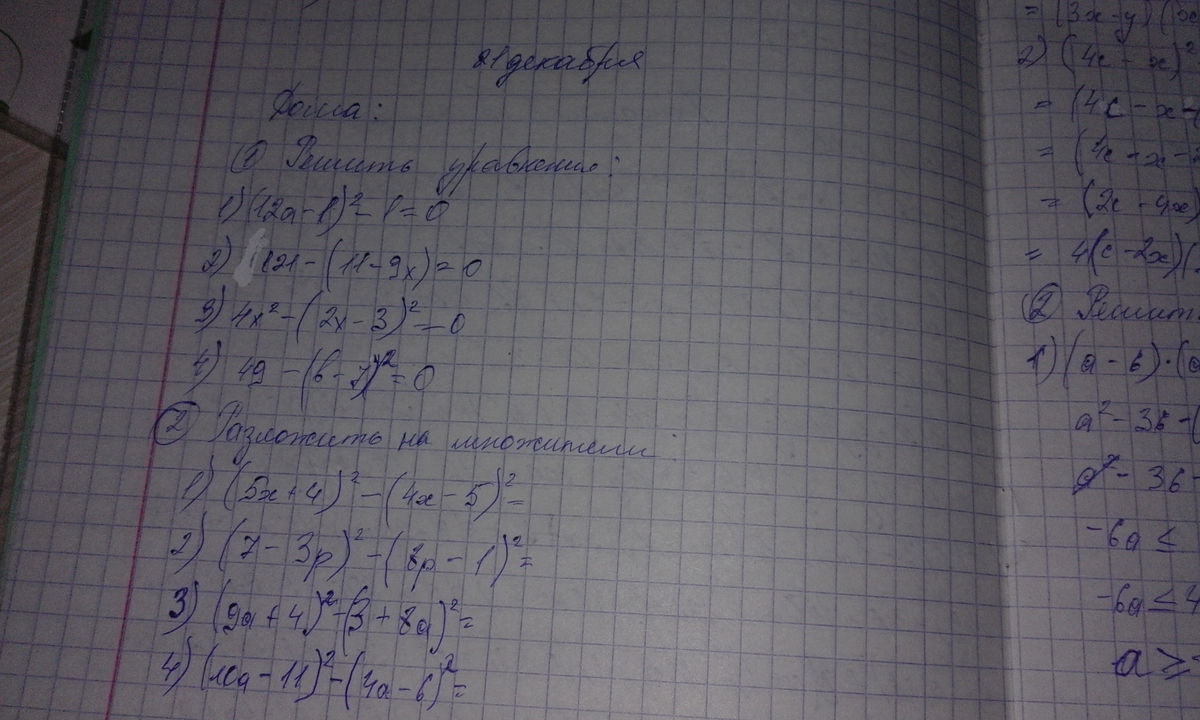 21 декабря
Дома:
① Решить уравнения:
1) (12a-1)²-1=0
2) 121-(11-9x)=0
3) 4x²-(2x-3)²=0
4) 49-(b-7)²=0
② Разложить на множители:
1) (5x+4)²-(4x-5)²=
2) (7-3p)²-(8p-1)²=
3) (9a+4)²-(3+8a)²=
4) (10a-11)²-(4a-6)²=
= (3x-y)
2) (4c-x)²
= (4c-x-
= (4c-x-
= (2c-4x)
= 4(c-2x)(
② Решит
1) (a-b)·(a
a²-3b-
a²-3b-
-6a≤
-6a≤4
a≥